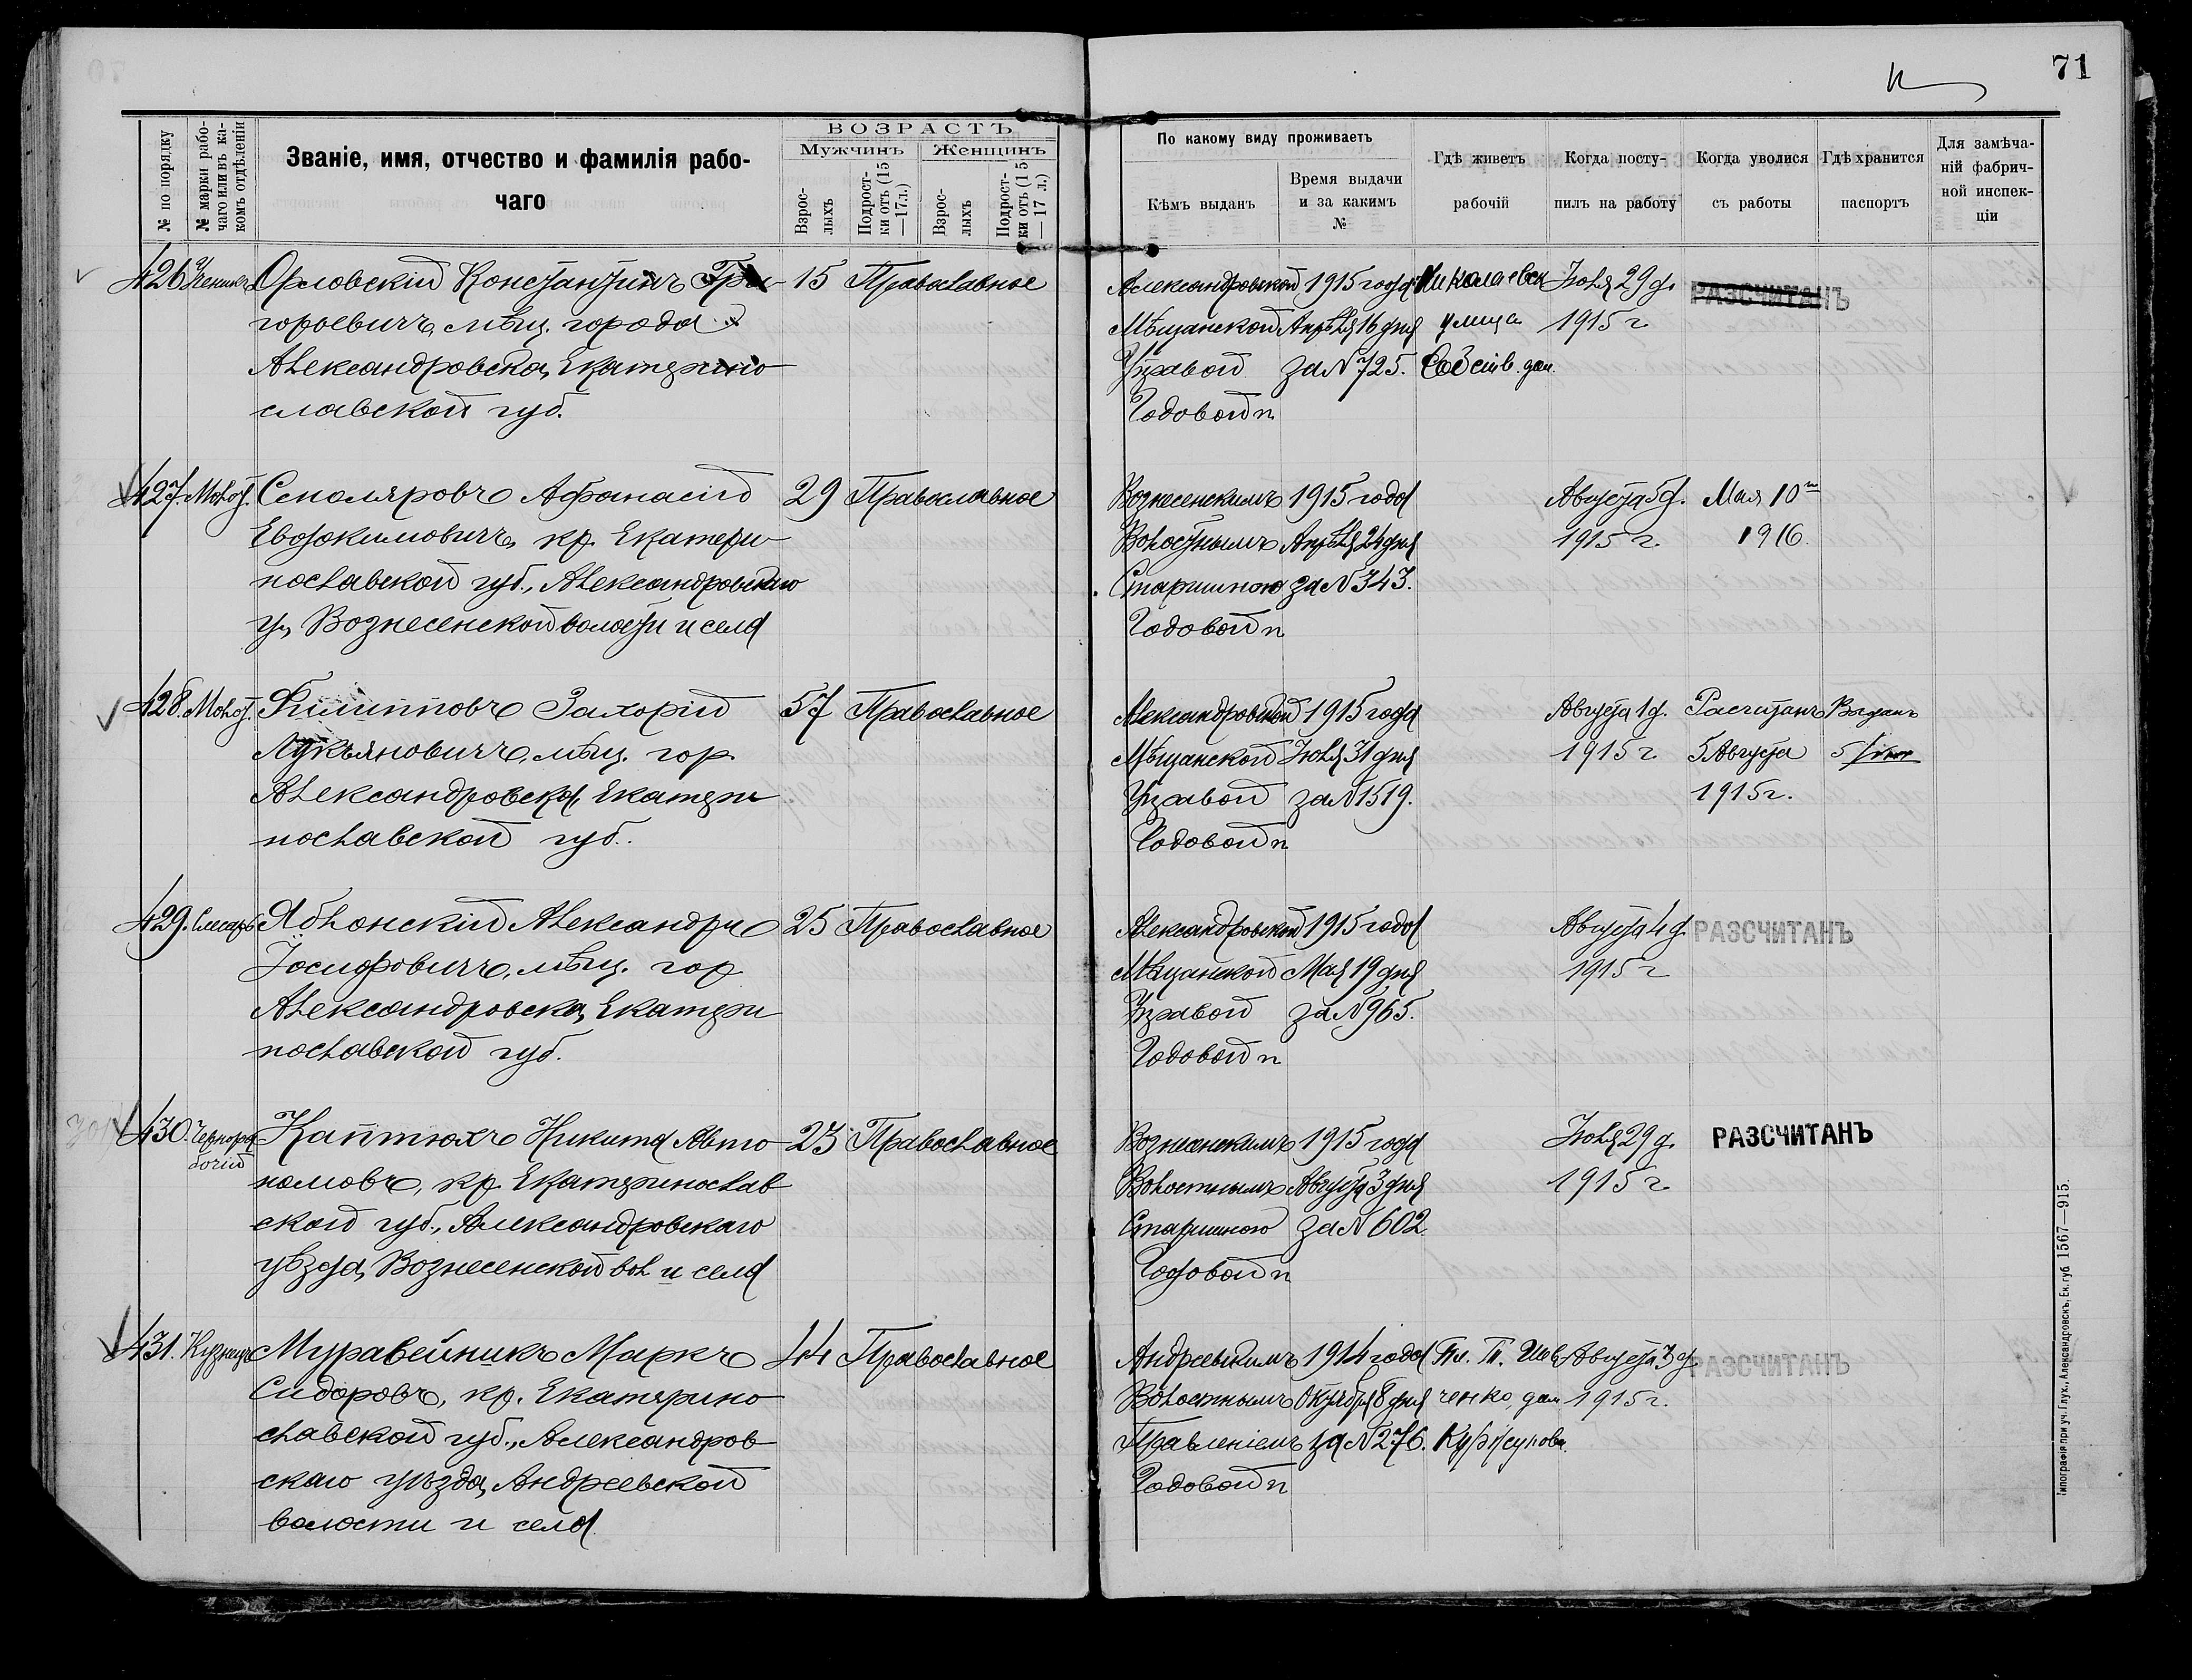 71
№ по порядку
№ марки рабо-
чаго или въ ка-
комъ отдѣленіи
Званіе, имя, отчество и фамилія рабо-
чаго
ВОЗРАСТЪ
Мужчинъ
Женщинъ
Взрос-
лыхъ
Подрост-
ки отъ (15
—17 л.)
Взрос-
лыхъ
Подрост-
ки отъ (15
—17 л.)
По какому виду проживаетъ
Кѣмъ выданъ
Время выдачи
и за какимъ
№
Гдѣ живетъ
рабочій
Когда посту-
пилъ на работу
Когда уволися
съ работы
Гдѣ хранится
паспортъ
Для замѣча-
ній фабрич-
ной инспек-
ціи
426 Ученикъ Орловскій Константинъ Гри- 15 Православное
горьевичъ, мѣщ. города
Александровска, Екатерино-
славской губ.
Александровской 1915 года Николаевск Іюля 29 д. РАЗСЧИТАНЪ
Мѣщанской Апрѣля 16 дня улица 1915 г
Управой за № 725. Собств. дом.
Годовой п
427. Молот. Столяровъ Афанасій 29 Православное
Евдокимовичъ, кр. Екатери-
нославской губ., Александровскаго
у, Вознесенской волости и села
Вознесенскимъ 1915 года Августа 5 д. Мая 10го
Волостнымъ Апрѣля 24 дня 1915 г. 1916.
Старшиною за № 343.
Годовой п
428. Молот. Филипповъ Захорій 57 Православное
Лукьяновичъ, мѣщ. гор.
Александровска, Екатери-
нославской губ.
Александровской 1915 года Августа 1 д. Расчитанъ Выданъ
Мѣщанской Іюля 31 дня 1915 г. 5 Августа 5
Управой за № 1519. 1915 г.
Годовой п
429. Слесарь Яблонскій Александръ 25 Православное
Іосифовичъ, мѣщ. гор
Александровска, Екатери-
нославской губ.
Александровской 1915 года Августа 4 д. РАЗСЧИТАНЪ
Мѣщанской Мая 19 дня 1915 г
Управой за № 965.
Годовой п
430. Чернора- Каптюхъ Никита Авто- 23 Православное
бочій
номовъ, кр. Екатеринослав-
ской губ., Александровскаго
уѣзда, Вознесенской вол и села
Вознесенскимъ 1915 года Іюля 29 д. РАЗСЧИТАНЪ
Волостнымъ Августа 3 дня 1915 г.
Старшиною за № 602
Годовой п
431. Кузнецъ Муравейникъ Маркъ 44 Православное
Сидоровъ, кр. Екатерино-
славской губ., Александров-
скаго уѣзда, Андреевской
волости и села
Андреевскимъ 1914 года Августа 3 д. РАЗСЧИТАНЪ
Волостнымъ Октября 8 дня ченко, дом 1915 г.
Правленіемъ за № 276.
Годовой п
Типографія при уч. Глух., Александровскъ, Ек. губ 1567—915.